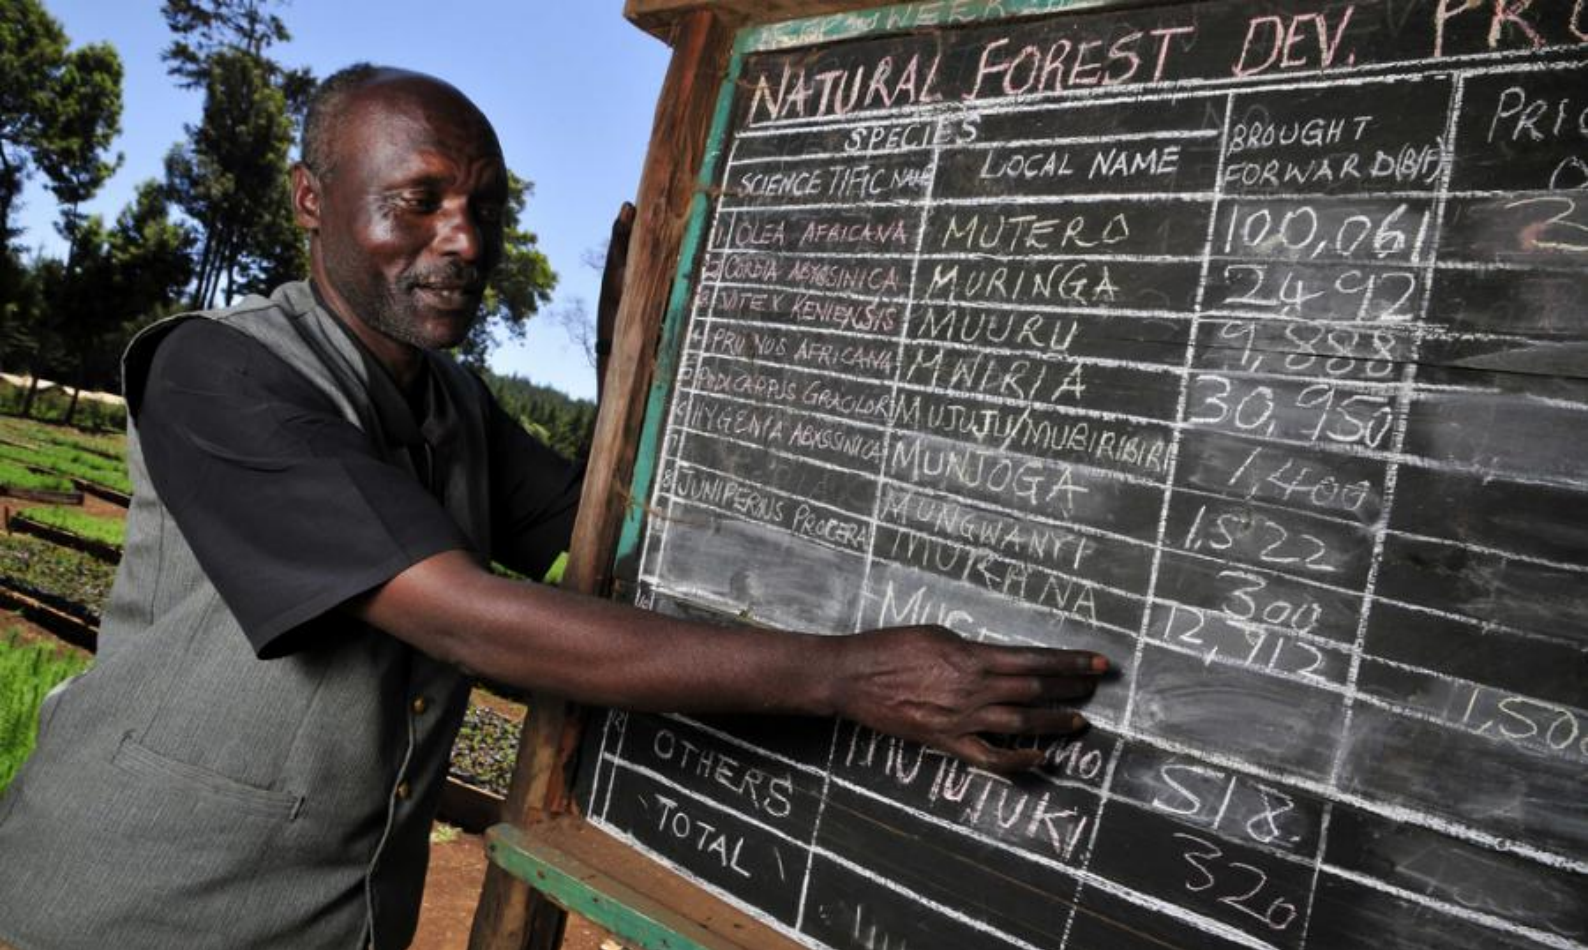 WEEK
NATURAL FOREST DEV. PRO
SPECIES
SCIENCETIFIC NAME LOCAL NAME BROUGHT FORWARD(B/F) PRI
1 OLEA AFRICANA MUTERO 100,061
2 CORDIA ABYSSINICA MURINGA 24,92
3 VITEX KENIENSIS MUURU 9,888
4 PRUNUS AFRICANA MWIRIA 30,950
5 PODICARPUS GRACILOR MUJUJU/MUBIRIBIRI 1,400
6 HYGENIA ABYSSINICA MUNJOGA 1,522
7 MUNGWANYI 300
8 JUNIPERUS PROCERA MUTRANA 12,912
1,50
MO 518.
OTHERS MUTUTUKI 320
TOTAL